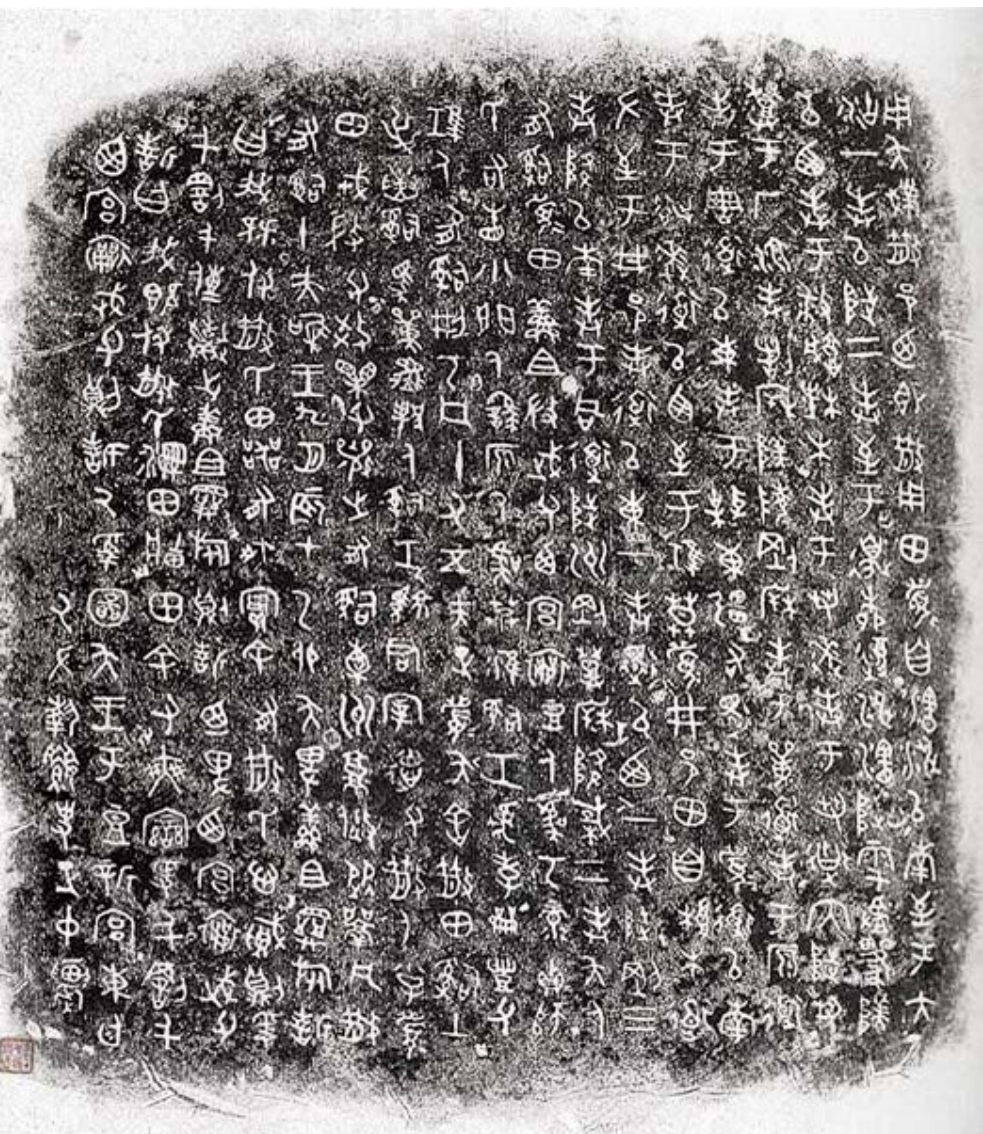 用夨𢦏散邑乃即散用田眉自瀗涉以南至于大
沽一封以陟二封至于邊柳復涉瀗陟雩
以西封于播城楮木封于芻逨封于芻道內陟芻
登于厂湶封剖柝陵剛柝封于單道封于原道
封于周道以東封于東疆右還封于眉道以南
封于逨道以西至于堆莫眉井邑田自根木道
左至于井邑封道以東一封還以西一封陟剛三
封降以南封于同道陟州剛登柝降棫二封夨人
有司眉田鮮且微武父西宮襄豆人虞丂彔貞師
氏右眚小門人繇原人虞艿淮司工虎孝開豐父
琱人有司刑丂凡十又五夫正眉夨舍散田司土
屰寅司馬單堒邦人司工黥君宰德父散人小子眉
田戎微父效欋父襄之有司橐州就焂從鬲凡散
有司十夫唯王九月辰在乙卯夨俾鮮且旅誓
曰我既付散氏田器有爽實余有散氏心賊則爰
千罰千傳棄之鮮且旅則誓乃俾西宮襄武父
誓曰我既付散氏濕田牆田余有爽變爰千罰千
西宮襄武父則誓厥受圖夨王于豆新宮東廷
厥左執要史正仲農